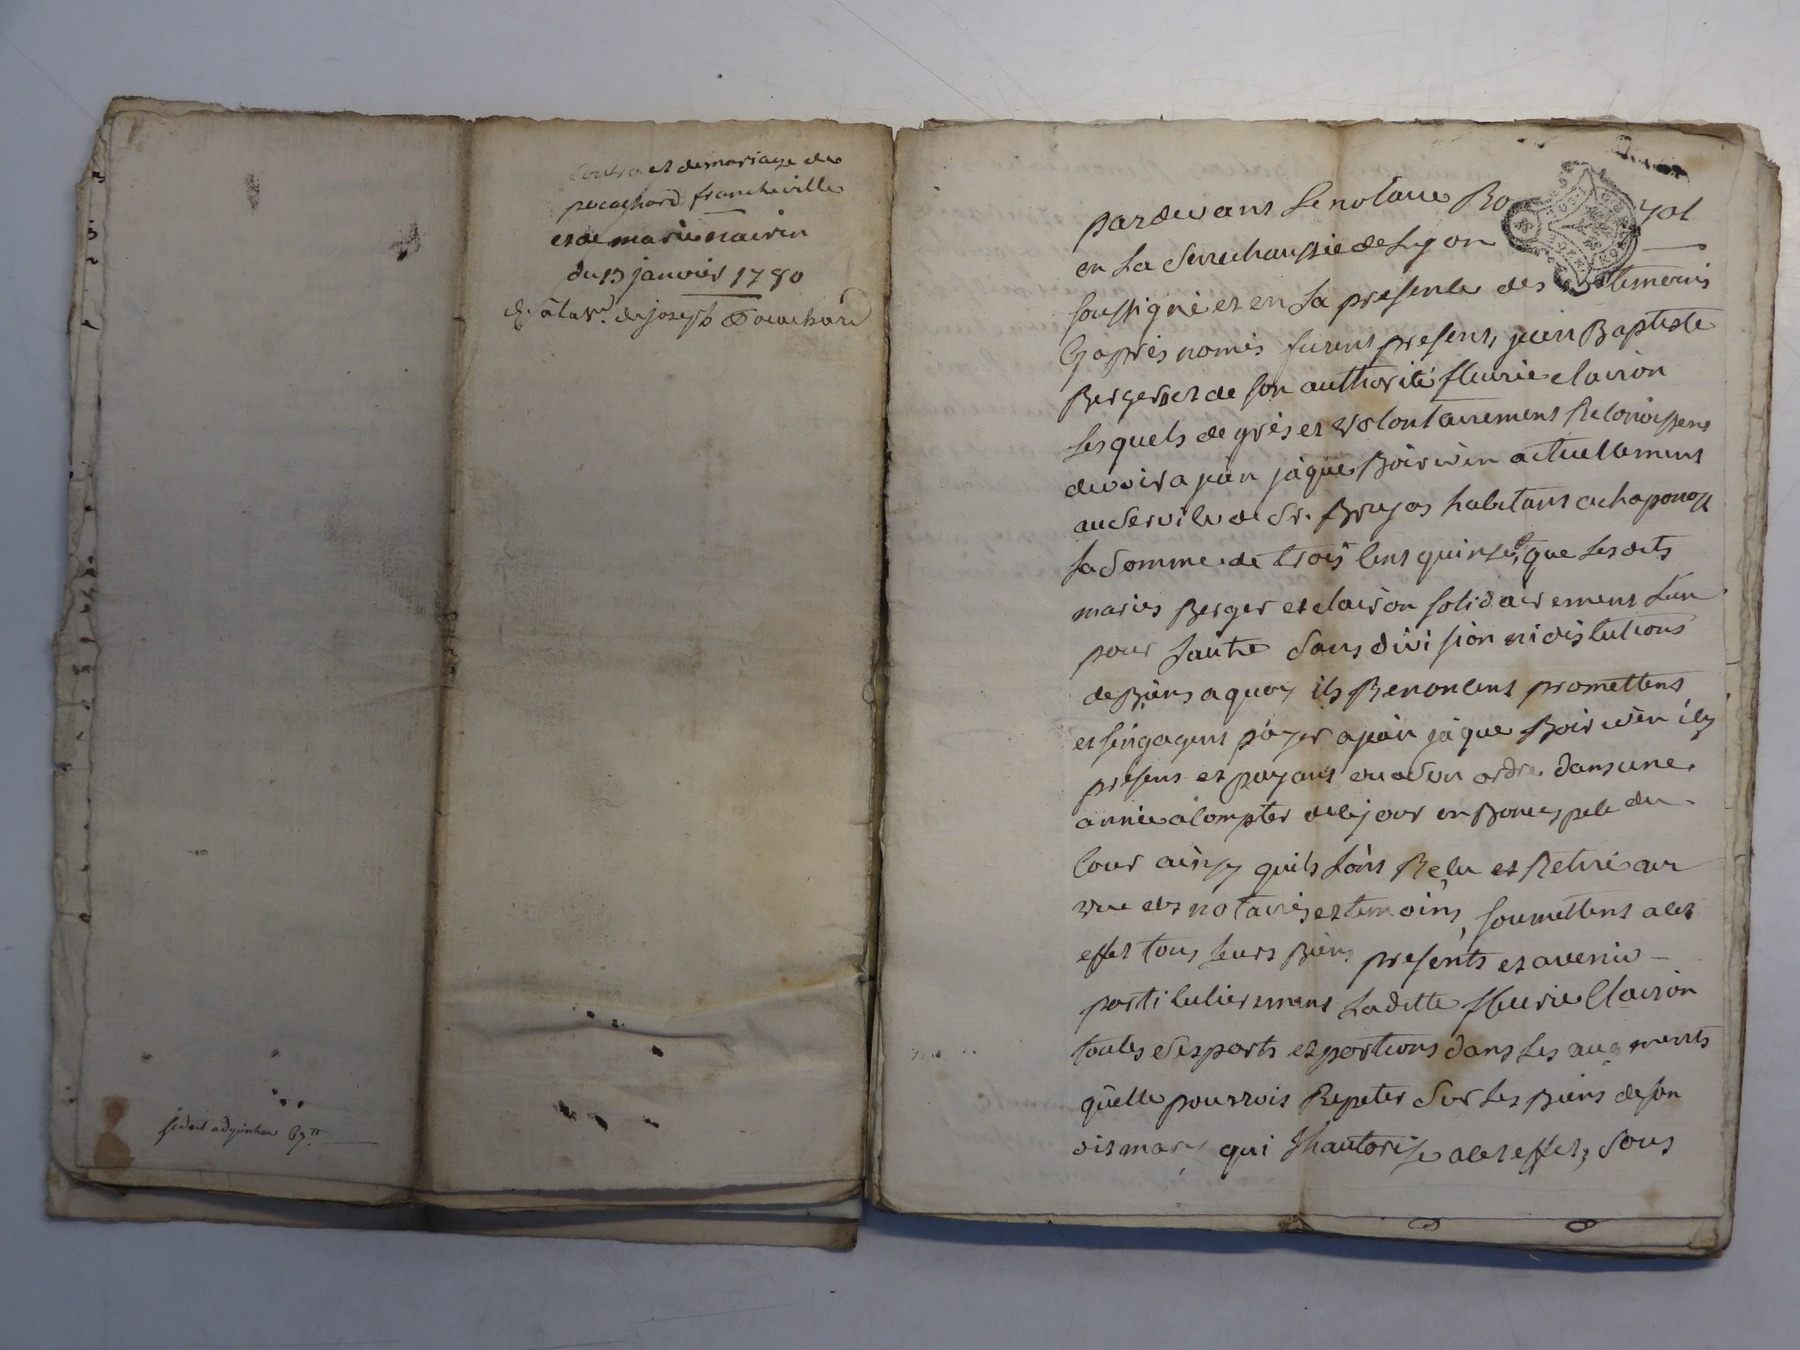 Contract de mariage de
pocachard francheville
et de marie nairin
du 13 janvier 1780
de joseph Pocachard
pardevant le notaire Ro yal
en la senechaussée de Lyon
soussigné et en la presence des temoins
cy apres només furent presens, jean Baptiste
Berger et de son authorité fleurie clairon
lesquels de grès et volontairement Reconoissent
devoir a jean jâque Boirivin actuellement
au service de Sr. Brujas habitant a chaponost
la somme de trois cens quinze que lesdits
mariés Berger et clairon solidairement l'un
pour l'autre sans division ni distutions
de Biens a quoy ils Renoncent promettent
et s'engagent pa'yer a jean jâque Boirivin icy
présent et ou a son ordre dans une
année a compter de ce jour en
cour ainsy quils l'ont Reçu et Retiré au
vue des notaires et temoins, soumettent a cet
effet tous leurs Biens presents et avenir
particulierement laditte fleurie Clairon
toutes ses parts et portions dans les augments
qu'elle pourrois Repeter sur les Biens de son
dit mary qui l'hautorise a cet effet, sous